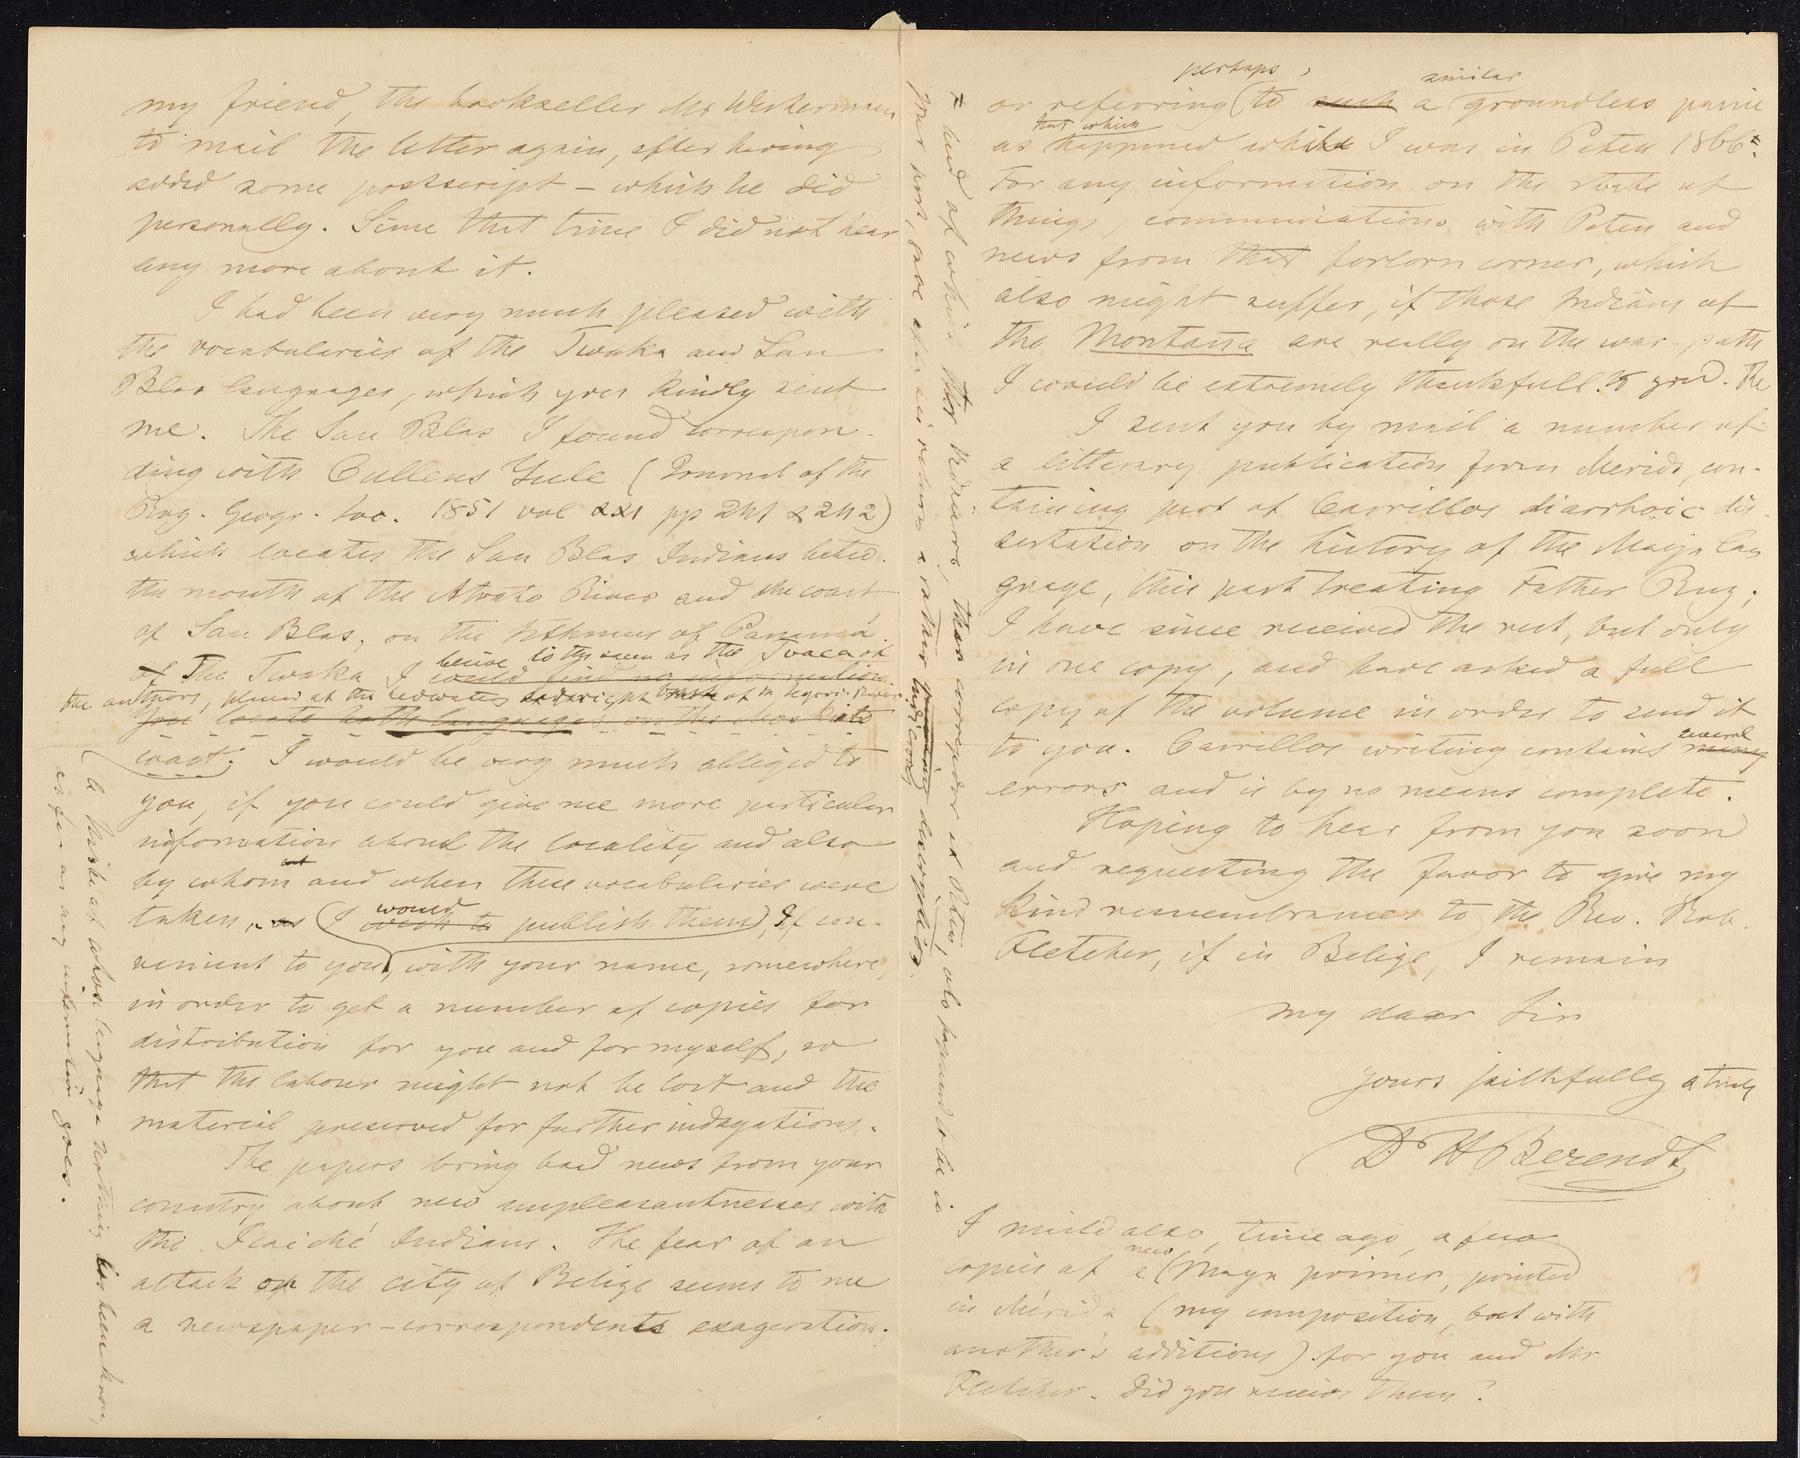 my friend, the bookseller Mr Westermann
to mail the letter again, after having
added some postscript – which he did
personally. Since that time I did not hear
any more about it.
I had been very much pleased with
the vocabularies of the Twaka and San
Blas languages, which you kindly sent
me. The San Blas I found correspon-
ding with Cullens Yule (Journal of the
Roy. Geogr. Soc. 1851 vol XXI pp 241 & 242)
which locates the San Blas Indians betw.
the mouth of the Atrato River and the coast
of San Blas, on the Isthmus of Panamá.
beleive to be the same as the Toacas of
of The Twaka I could find no information
the authors, placed at the right of Segovia River
You locate both languages on the Moskito
coast. I would be very much obliged to
you, if you could give me more particular
information about the locality and also
by whom and when these vocabularies were
would
taken, as (I wish to publish them), If con-
venient to you, with your name, somewhere,
in order to get a number of copies for
distribution for you and for myself, so
that the labour might not be lost and the
material preserved for further indagations.
The papers bring bad news from your
country, about new unpleasantnesses with
the Icaiché Indians. The fear of an
attack on the city of Belize seems to me
a newspaper-correspondents exageration.
(a tribe of whose language nothing has been known,
as far as my information goes.
perhaps, similar
or referring (to such a groundless panic
that which
as happened while I was in Peten 1866.
For any information on the state of
things, communications with Peten and
news from that forlorn corner, which
also might suffer, if those Indians of
the Montaña are really on the war-path
I could be extremely thankfull to you. The
I sent you by mail a number of
a litterary publication from Merida, con-
taining part of Carrillos diarrhoic dis-
sertation on the history of the Maya lan
guage, this part treating Father Ruz;
I have since received the rest, but only
in one copy, and have asked a full
copy of the volume in order to send it
several
to you. Carrillos writing contains many
errors and is by no means complete.
Hoping to hear from you soon
and requesting the favor to give my
kind remembrances to the Rev. Rob.
Fletcher, if in Belize, I remain
my dear Sir
Yours faithfully & truly
Dr H Berendt
I mailed also, time ago, a few
new
copies of a (Maya primer, printed
in Mérida (my composition, but with
another's additions) for you and Mr
Fletcher. Did you receive them?
and of which their Indians, their corregidor at Peten, also